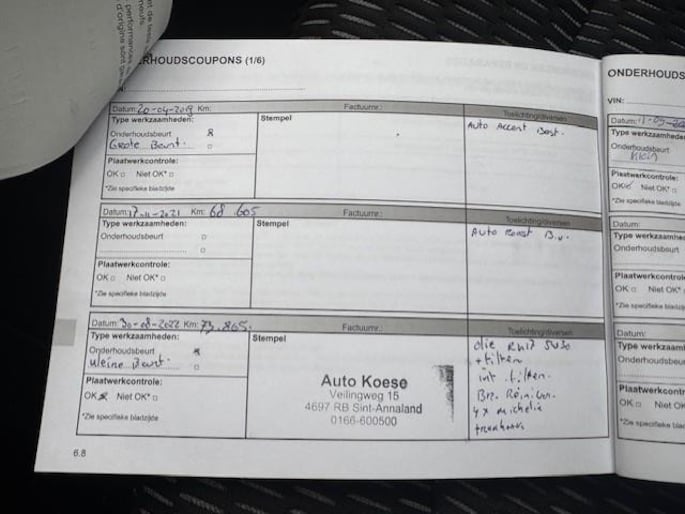 RHOUDSCOUPONS (1/6)
Datum: 20-04-2018 Km:
Factuurnr.:
Toelichting/diversen
Type werkzaamheden:
Stempel
Auto Accent Best.
Onderhoudsbeurt
Grote Beurt.
Plaatwerkcontrole:
OK Niet OK*
*Zie specifieke bladzijde
Datum: Km: 68 605
Factuurnr.:
Toelichting/diversen
Type werkzaamheden:
Stempel
Auto B.V.
Onderhoudsbeurt
Plaatwerkcontrole:
OK Niet OK*
*Zie specifieke bladzijde
Datum: 30-08-2022 Km: 73.865.
Factuurnr.:
Toelichting/diversen
Type werkzaamheden:
Stempel
olie RN17 5W30
Onderhoudsbeurt
+ filter
kleine Beurt.
int. filter.
Plaatwerkcontrole:
OK Niet OK*
*Zie specifieke bladzijde
Auto Koese
Veilingweg 15
4697 RB Sint-Annaland
0166-600500
4x michelin
6.8
ONDERHOUDS
VIN:
Datum:
Type werkzaamhede
Onderhoudsbeurt
Klein
Plaatwerkcontrole:
OK Niet OK*
*Zie specifieke bladzijde
Datum:
Type werkzaamhe
Onderhoudsbeurt
Plaatwerkcontrol
OK Niet OK*
*Zie specifieke bladz
Datum:
Type werkzaaml
Onderhoudsbeu
Plaatwerkcontr
OK Niet OK
*Zie specifieke blad